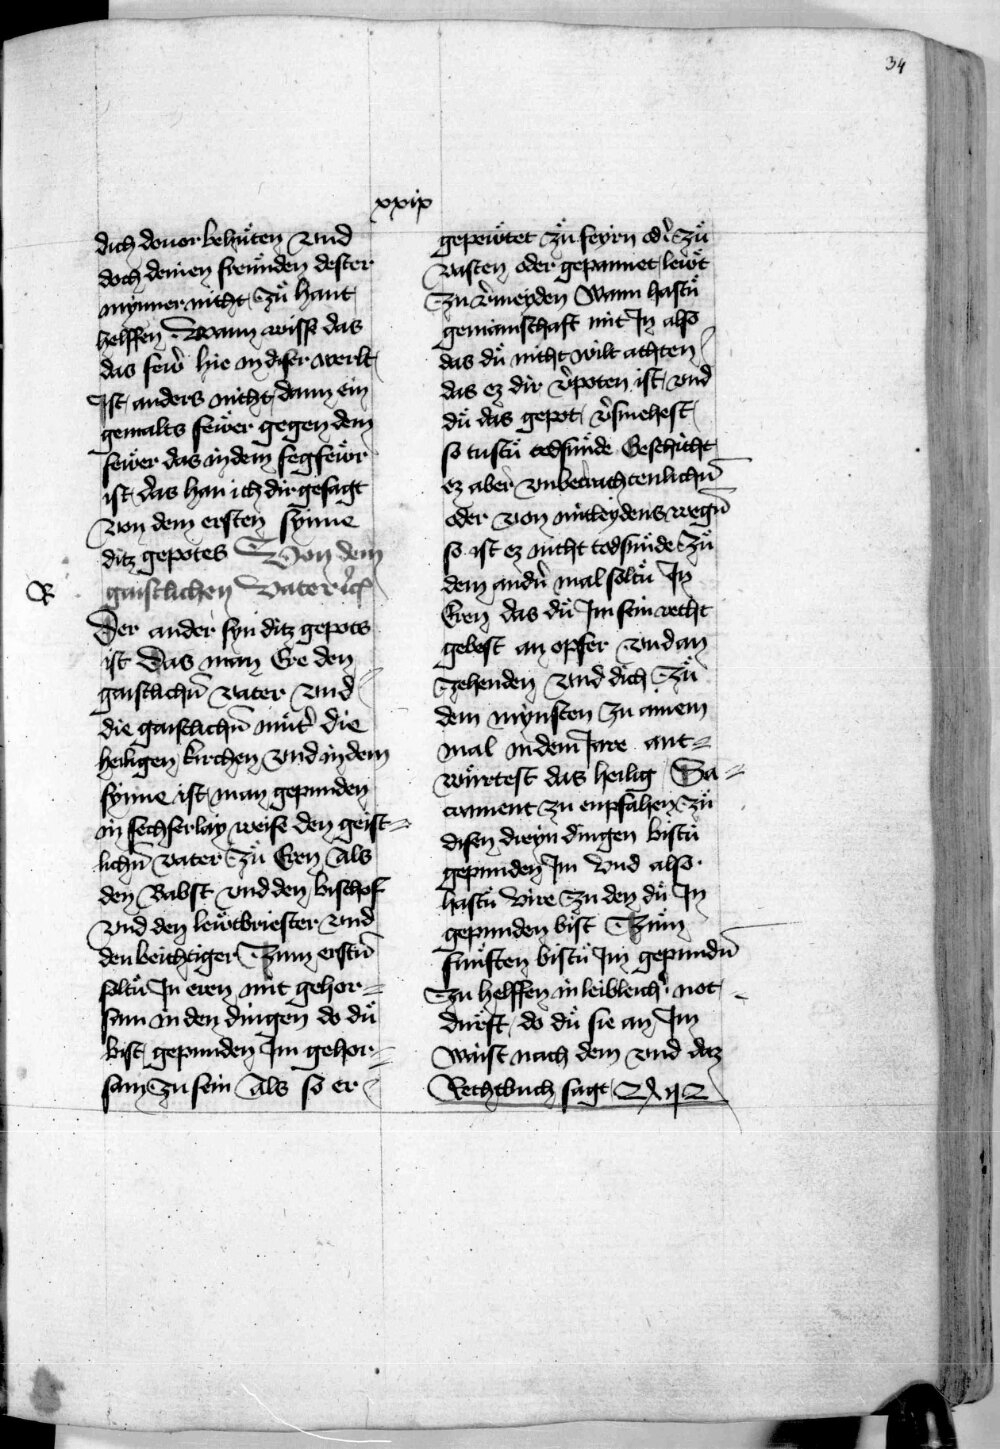 34
xxix
dich douor behuͤten vnd
doch deinen freuͤnden dester
mynner nicht zuͤ hant
helffen Wann wisse das
das feẅr hie in diser werlt
ist anders nicht dann ein
gemalts feẅer gegen dem
feẅer das in dem fegfeẅr
ist das han ich dir gesagt
von dem ersten synne
ditz gepotes Von dem
gaistlichen Vater
R
Der ander syn ditz gepots
ist Das man Ere den
gaistlichn̄ vater vnd
die gaistlichn̄ muͤt̄ die
heiligen kirchen vnd in dem
synne ist man gepunden
in sechserlay weise den geist=
lichn̄ vater zuͤ Eren Als
den Babst vnd den bischof
vnd den leẅtbriester vnd
den beichtiger Zum erstn̄
soltuͤ In eren mit gehor=
sam in den dingen do duͤ
bist gepunden Im gehor=
sam zu sein Als so er
gepeẅtet zuͤ feyrn od̄ zuͤ
vasten oder gepannet leẅt
zu v̄meyden Wann hastuͤ
gemainschaft mit In also
das duͤ nicht wilt achten
das ez dir v̄poten ist vnd
duͤ das gepot v̄smehest
so tustuͤ todsuͤnde Geschicht
ez aber vnbetrachtenlichn̄
oder von mitleydens wegn̄
so ist ez nicht todsuͤnde Zuͤ
dem andn̄ mal soltuͤ In
Eren das duͤ Im sein recht
gebest an opfer vnd an
zehenden vnd dich zuͤ
dem mynsten zu ainem
mal in dem Jare ant=
wuͤrtest das heilig Sa=
crament zu enpfahen zuͤ
disen dreyn dingen bistuͤ
gepunden Im vnd also
hastuͤ vire zu den duͤ In
gepunden bist Zum
fuͤnften bistuͤ Im gepundn̄
zu helffen in leiblich̄ not
durft do duͤ sie an Im
waist nach dem vnd daz
Rechtbuch sagt